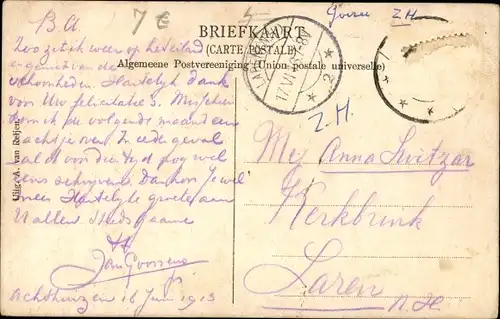 B.A
BRIEFKAART
(CARTE POSTALE)
Algemeene Postvereeniging (Union postale universelle)
Goeree Z.H.
LAREN
17 VI
2
Z.H.
Uitg. A. van Reijen.
Zoo zit ik weer op Flakland
en geniet van de
schoonheden. Hartelijk dank
voor Uw felicitatie's. Misschien
kom ik de volgende maand een
nachtje over. In ieder geval
zal ik voor die tijd nog wel
eens schrijven. Dan hoor je wel
meer. Hartelijke groeten aan
U allen. Steeds gaarne
Jan Goossens
Achthuizen 16 Juni 1913
Mej Anna Switzar
Kerkbrink
Laren
N.H.